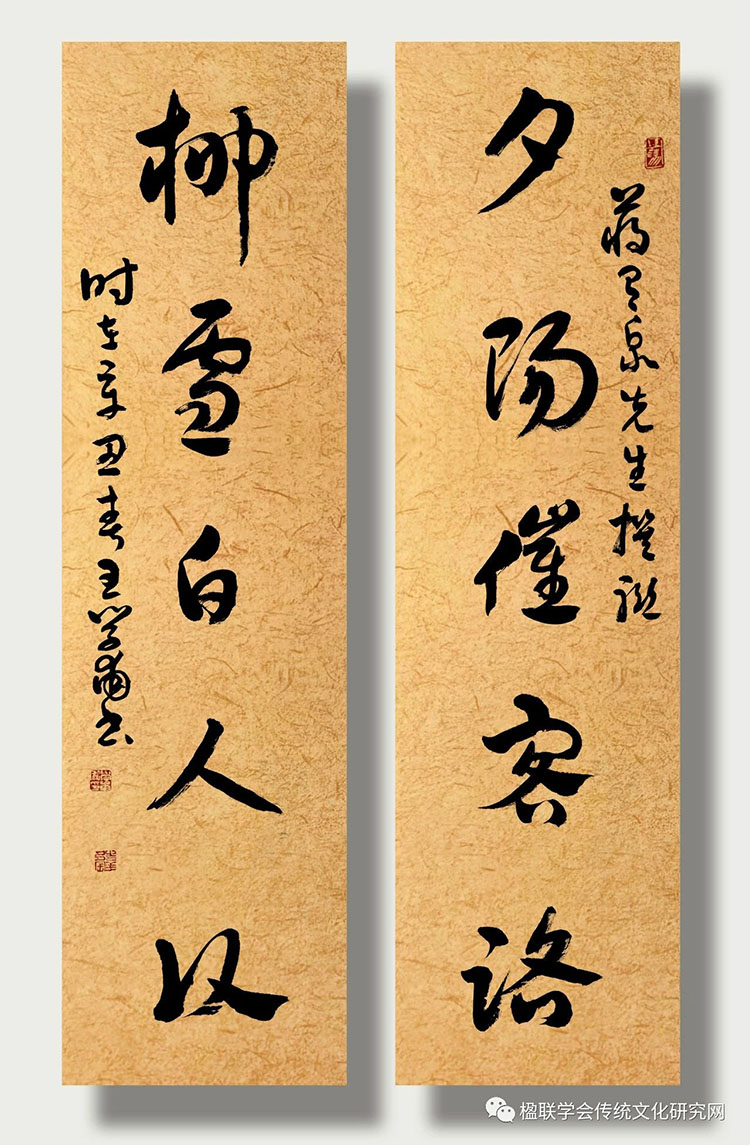 夕陽催客路
蒋有泉先生撰联
柳雪白人头
时在辛丑春王学书
楹联学会传统文化研究网